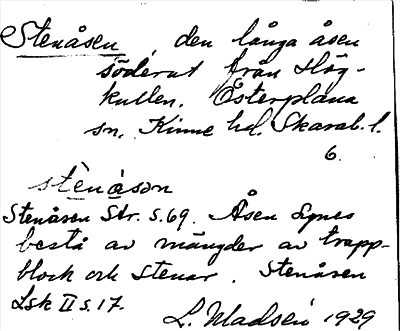 Stenåsen, den långa åsen
söderut från Hög-
kullen. Österplana
sn. Kinne hd. Skarab. l.
6.
stènàsən
Stenåsen Str. s. 69. Åsen synes
bestå av mängder av trapp-
block och stenar. Stenåsen
Lsk II s. 17.
L. Madsén 1929